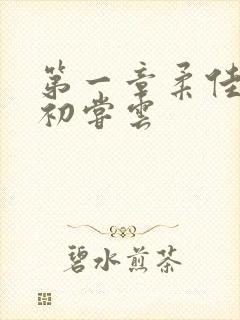 第一章柔佳
初尝雲
碧水煎茶